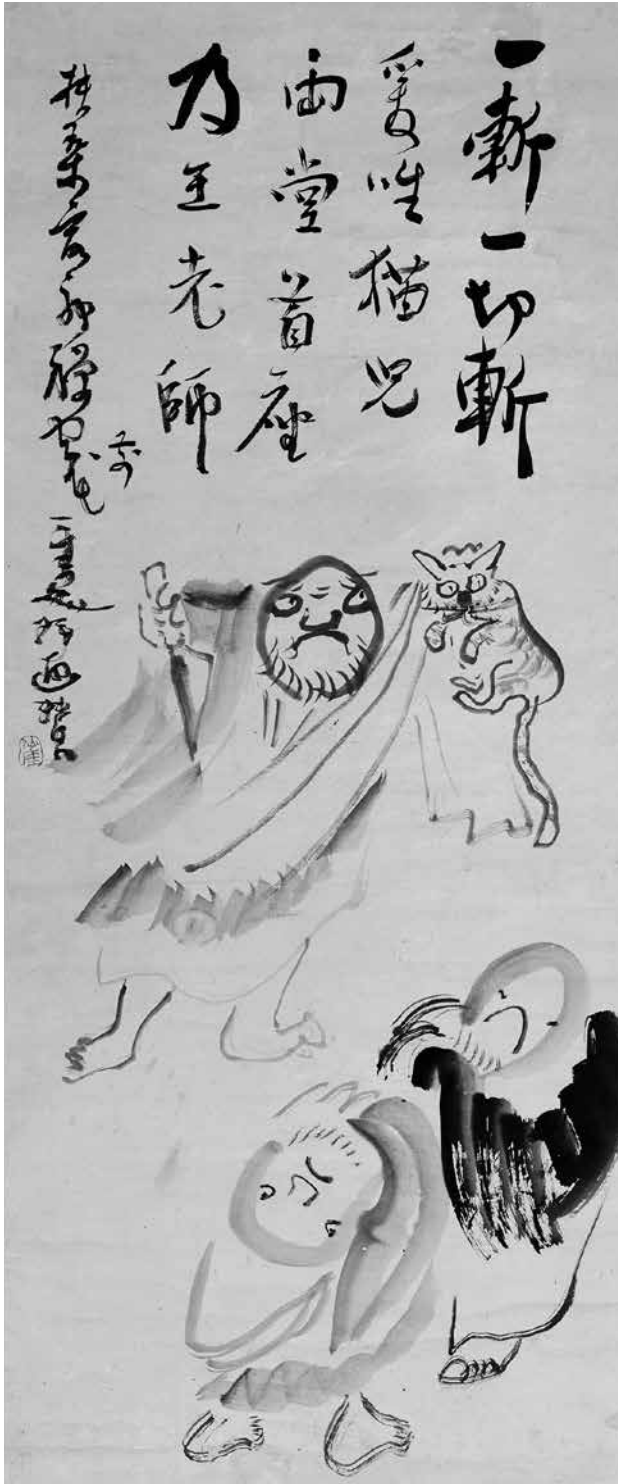 一斬一切斬
爰唯猫児
両堂首座
及王老師
扶桑最初禅窟